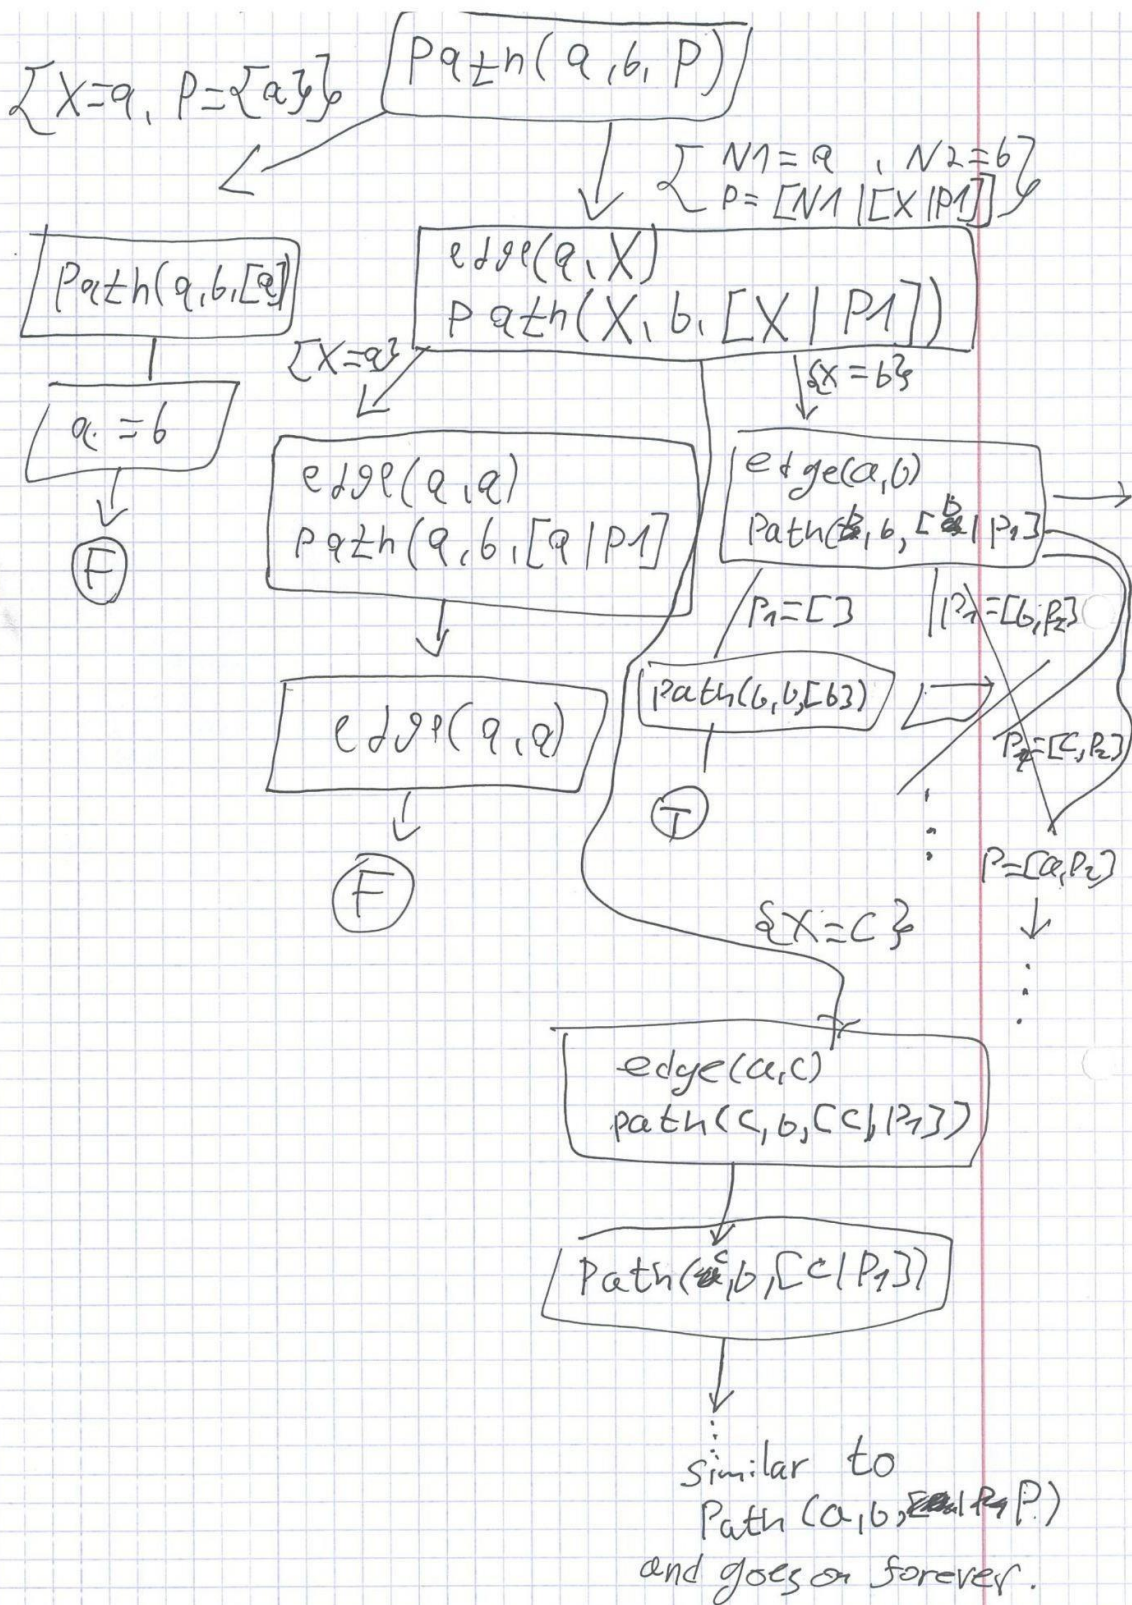 Path(a,b,P)
{X=a, P={a}}
{ N1=a , N2=b }
P=[N1|[X|P1]]
Path(a,b,[a]
edge(a,X)
path(X,b,[X|P1])
{X=a}
{X=b}
a=b
F
edge(a,a)
path(a,b,[a|P1]
edge(a,b)
Path(b,b,[b|P1]
P1=[]
P1=[b,P2]
edge(a,a)
F
Path(b,b,[b])
T
P1=[C,P2]
P=[a,P2]
{X=C}
edge(a,c)
path(c,b,[c|P1])
Path(c,b,[c|P1])
similar to
Path(a,b, P)
and goes on forever.